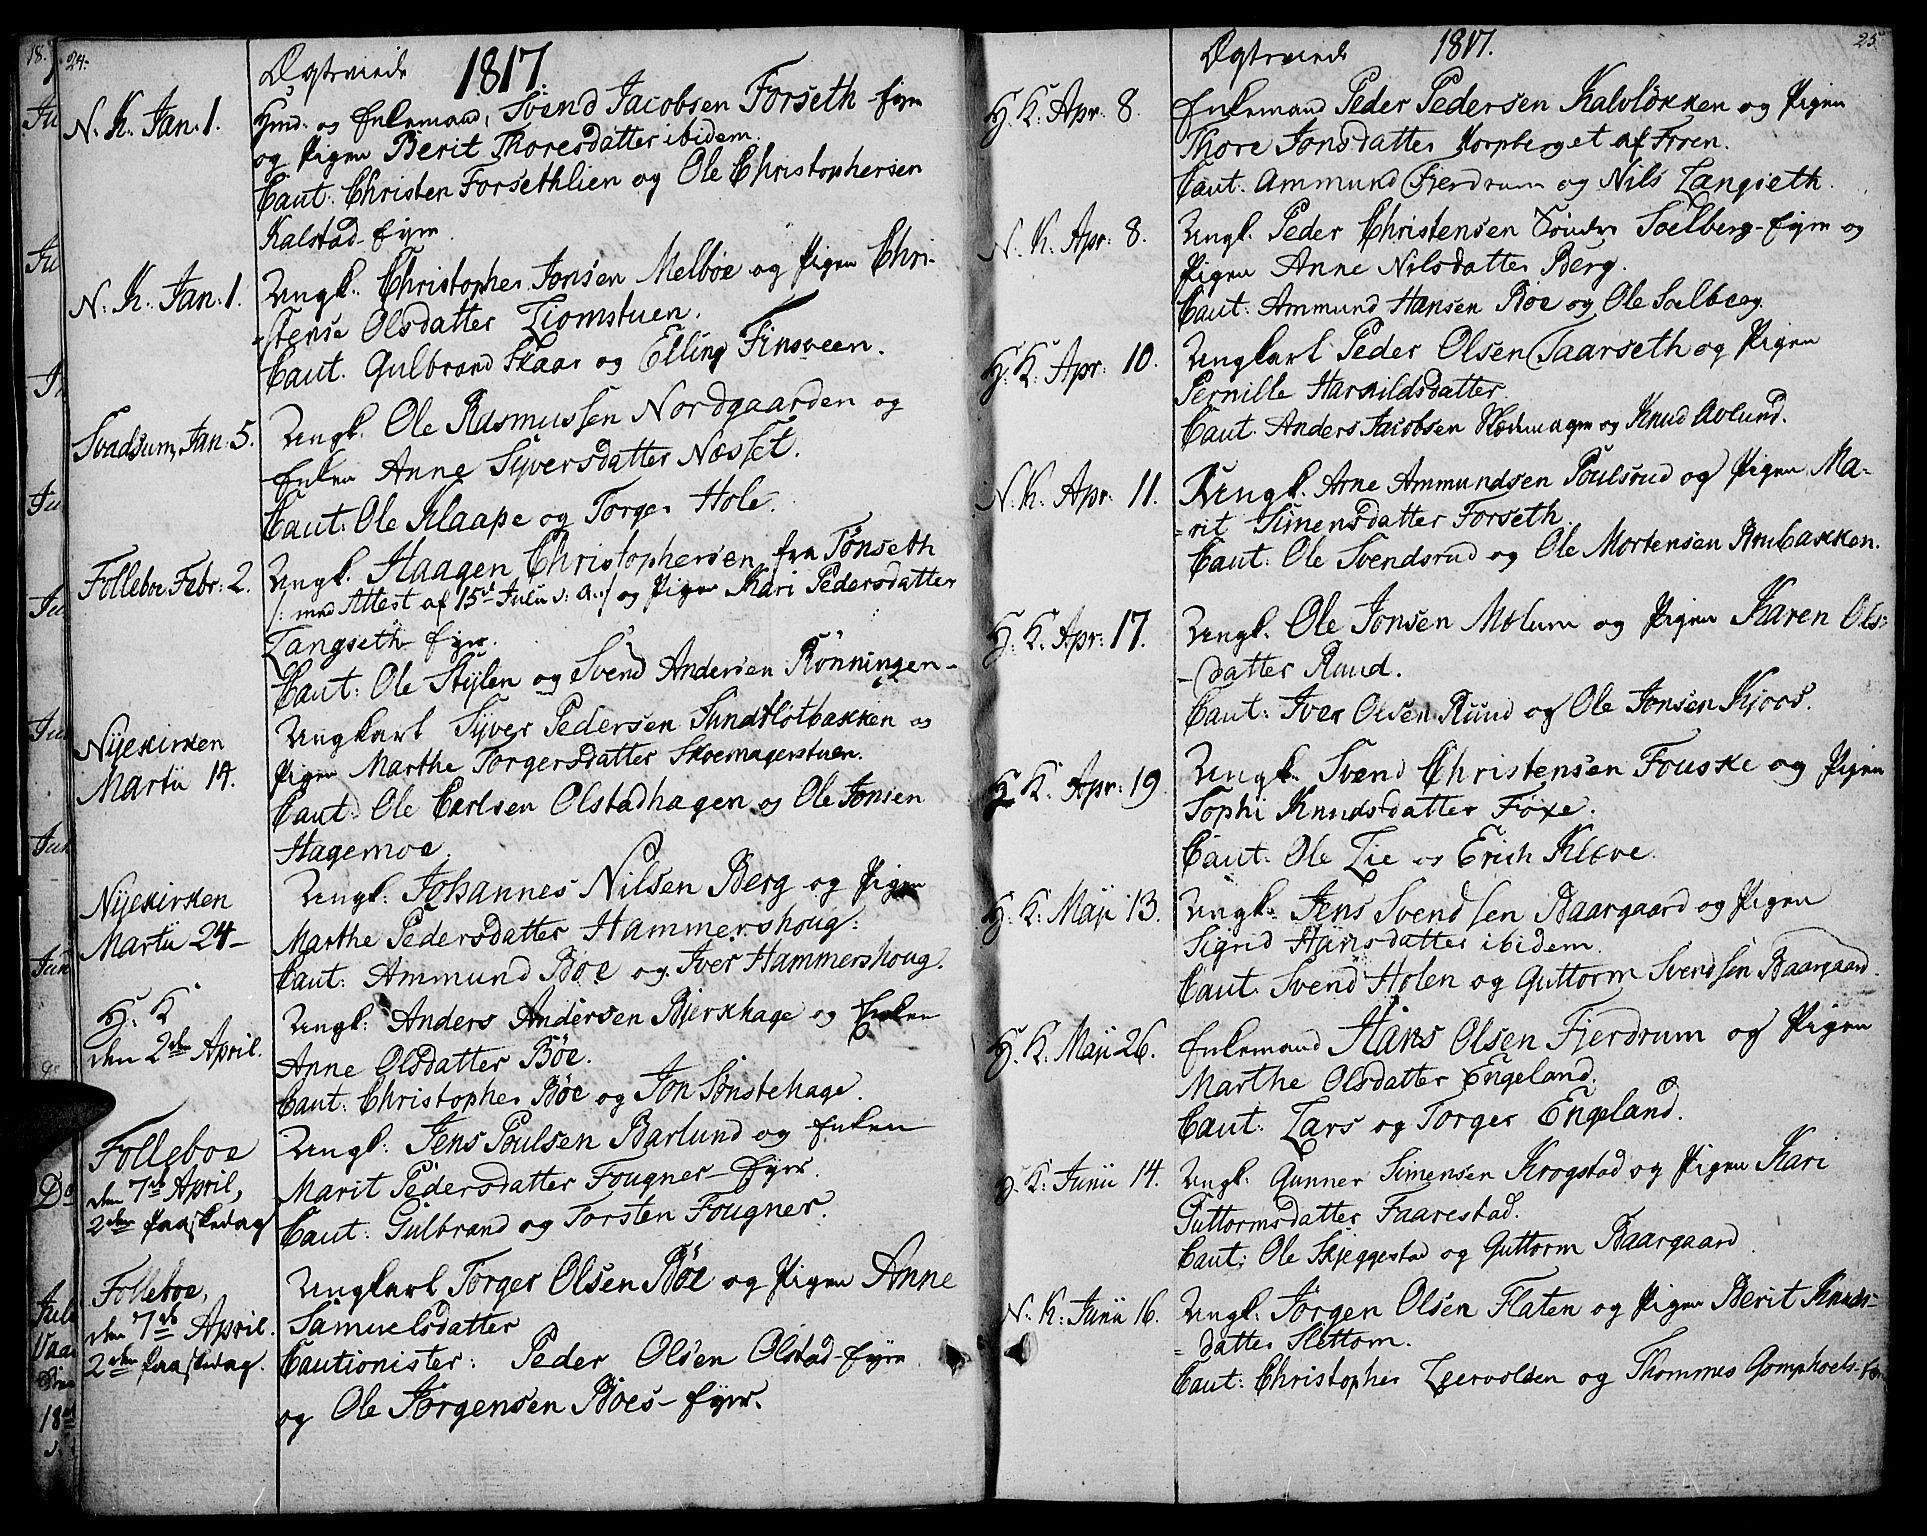 24.
Ægteviede 1817
N. K. Jan. 1.
Gmd. og Enkemand, Svend Jacobsen Forseth-Eyer
og Pigen Berit Thoresdatter ibidem.
Caut: Christen Forsethlien og Ole Christophersen
Kalstad-Eyer
N. K. Jan. 1.
Ungk. Christopher Jonsen Melbøe og Pigen Chri-
-stense Olsdatter Liomstuen.
Caut. Gulbrand Skaar og Elling Finsveen.
Svadsum, Jan. 5.
Ungk. Ole Rasmussen Nordgaarden og
Enken Anne Syversdatter Næsset.
Caut: Ole Klaape og Torger Hole.
Folleboe Febr: 2.
Ungk. Haagen Christophersen fra Tønseth
/: med Attest af 15de Julii v: a. :/ og Pigen Kari Pedersdatter
Langseth-Eyer.
Caut: Ole Stylen og Svend Andersen Rønningen-
Nyekirken
Martii 14.
Ungkarl Syver Pedersen Sundflotbakken og
Pigen Marthe Torgersdatter Skoemagerstuen.
Caut: Ole Carlsen Olstadhagen og Ole Jonsen
Hagemoe
Nyekirken
Martii 24-
Ungk: Johannes Nilsen Berg og Pigen
Marthe Pedersdatter Hammershoug:
Caut: Ammund Bøe og Iver Hammershoug.
H. K
den 2den April.
Ungk: Anders Andersen Bierkhage og Enken
Anne Olsdatter Bøe.
Caut: Christopher Bøe og Jon Sønstehage.
Folleboe
den 7de April,
2den Paaskedag
Ungk: Jens Poulsen Barlund og Enken
Marit Pedersdatter Fougner-Eyer.
Caut: Gulbrand og Torsten Fougner.
Folleboe,
den 7de April.
2den Paaskedag.
Ungkarl Torger Olsen Bøe og Pigen Anne
Samuelsdatter
Cautionister: Peder Olsen Olstad-Eyer
og Ole Jørgensen Bøes-Eyer.
25.
Ægteviede 1817.
H. K. Apr: 8.
Enkemand Peder Pedersen Kalvløkken og Pigen
Thore Jonsdatter Korpberget af Froen.
Caut: Ammund Fierdrum og Nils Langseth.
N. K. Apr: 8.
Ungk. Peder Christensen Søndre Soelberg-Eyer og
Pigen Anne Nilsdatter Berg.
Caut: Ammund Hansen Bøe og Ole Soelberg.
H. K. Apr: 10.
Ungkarl Peder Olsen Taarseth og Pigen
Pernille Harkildsdatter
Caut. Anders Jacobsen og Knud Avlund.
N. K. Apr: 11.
Ungk. Arne Ammundsen Poulsrud og Pigen Ma-
-rit Simensdatter Forseth.
Caut: Ole Svendsrud og Ole Mortensen Brubakken.
H. K. Apr: 17.
Ungk. Ole Jonsen Molum og Pigen Karen Ols-
-datter Ruud.
Caut: Iver Olsen Ruud og Ole Jonsen Kjoos.
K. Apr: 19.
Ungk. Svend Christensen Fouske og Pigen
Sophi Knudsdatter Foxe.
Caut: Ole Lie og Erich Kleve.
H. K. Maji 13.
Ungk. Jens Svendsen Baargaard og Pigen
Sigrid Hansdatter ibidem.
Caut. Svend Holen og Guttorm Svendsen Baargaard
H. K. Maji 26.
Enkemand Hans Olsen Fierdrum og Pigen
Marthe Olsdatter Engeland.
Caut: Lars og Torger Engeland.
H. K: Junii 14.
Ungk. Gunner Simensen Krogstad og Pigen Kari
Guttormsdatter Faarestad.
Caut: Ole Skjeggestad og Guttorm Baargaard
N. K. Junii 16.
Ungk. Jørgen Olsen Flaten og Pigen Berit Knuds-
-datter Slettom.
Caut: Christopher Leervolden og Thommes